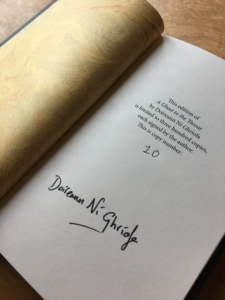 This edition of
A Ghost in the Throat
by Doireann Ní Ghríofa
is limited to three hundred copies,
each signed by the author.
This is copy number:
10
Doireann Ní Ghríofa